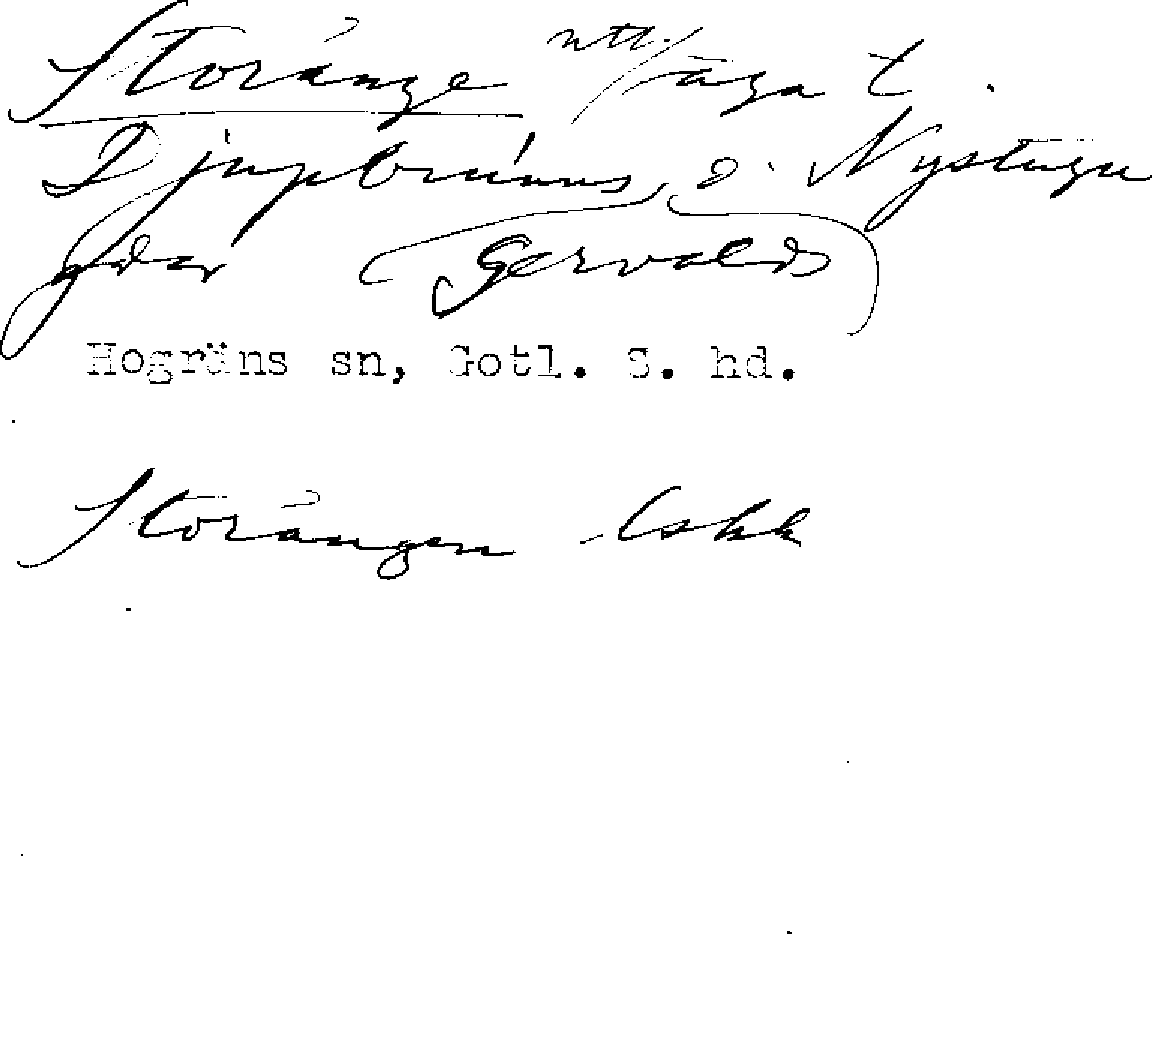 Storänge ntl./äga t.
Djupbrunns, o. Nystugu
gdar (Gervalds)
Hogräns sn, Gotl. S. hd.
Storängen